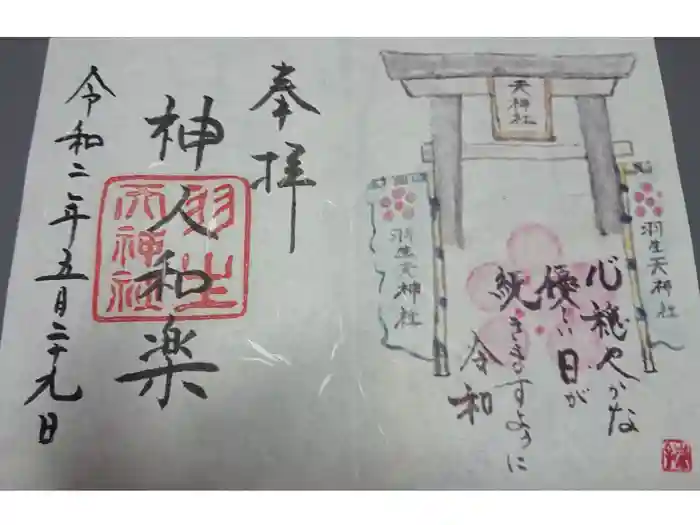 天神社
羽生天神社
羽生天神社
心穏やかな
優しい日が
続きますように
令和
奉拝
神人和楽
羽生
天神社
令和二年五月二十九日